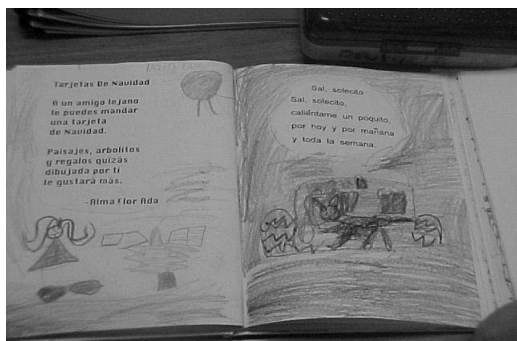 Tarjetas De Navidad
A un amigo lejano
le puedes mandar
una tarjeta
de Navidad.
Paisajes, arbolitos
y regalos quizás
dibujada por ti
le gustará más.
-Alma Flor Ada
Sal, solecito
Sal, solecito,
caliéntame un poquito,
por hoy y por mañana
y toda la semana.